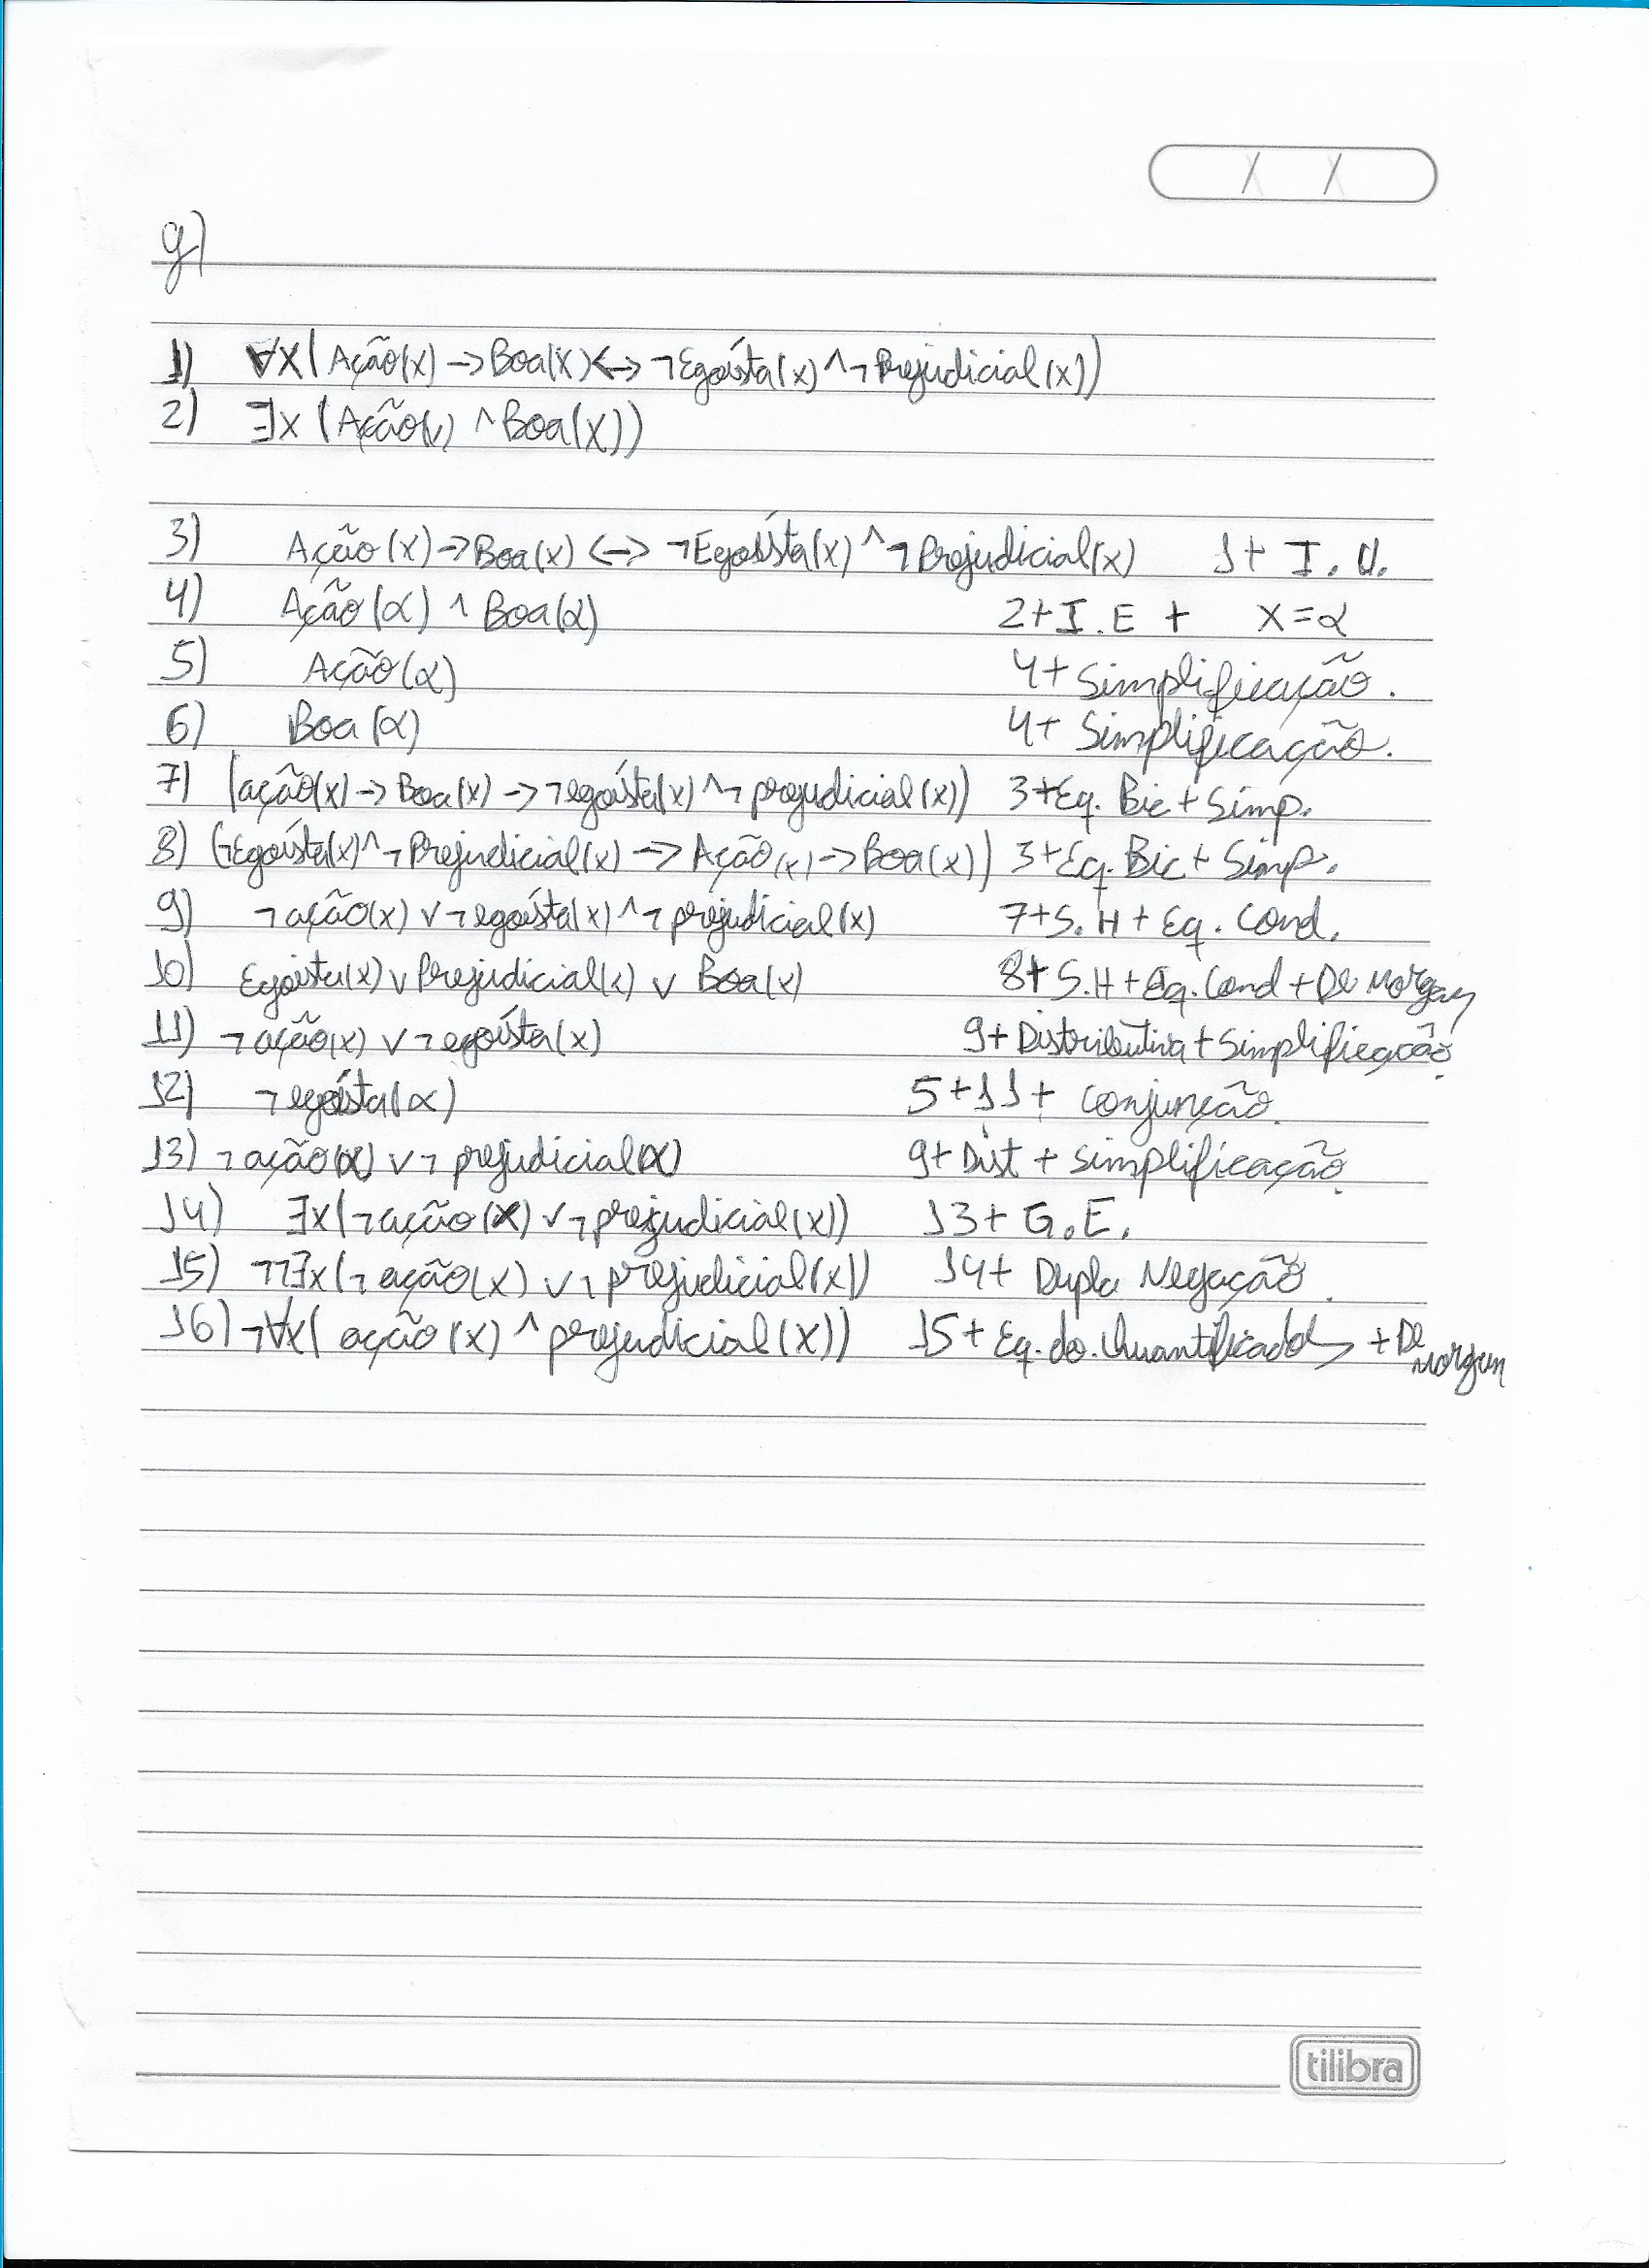 / /
g)
1) ∀x(Ação(x) -> Boa(x) <-> ¬Egoísta(x) ^ ¬Prejudicial(x))
2) ∃x (Ação(x) ^ Boa(x))
3) Ação(x) -> Boa(x) <-> ¬Egoísta(x) ^ ¬Prejudicial(x) 1+ I.U.
4) Ação(α) ^ Boa(α) 2+I.E + x=α
5) Ação(α) 4+ Simplificação.
6) Boa(α) 4+ Simplificação.
7) (ação(x) -> Boa(x) -> ¬egoísta(x) ^ ¬prejudicial(x)) 3+Eq. Bic + Simp.
8) (¬Egoísta(x) ^ ¬Prejudicial(x) -> Ação(x) -> Boa(x)) 3+Eq. Bic + Simp.
9) ¬ação(x) v ¬egoísta(x) ^ ¬prejudicial(x) 7+S.H + Eq. Cond.
10) Egoista(x) v Prejudicial(x) v Boa(x) 8+ S.H + Eq. Cond + De Morgan
11) ¬ação(x) v ¬egoísta(x) 9+ Distributiva + Simplificação.
12) ¬egoísta(α) 5+11+ Conjunção.
13) ¬ação(x) v ¬prejudicial(x) 9+ Dist + Simplificação.
14) ∃x(¬ação(x) v ¬prejudicial(x)) 13+ G.E.
15) ¬¬∃x(¬ação(x) v ¬prejudicial(x)) 14+ Dupla Negação.
16) ¬∀x( ação(x) ^ prejudicial(x)) 15+ Eq. do. Quantificador + De Morgan
tilibra